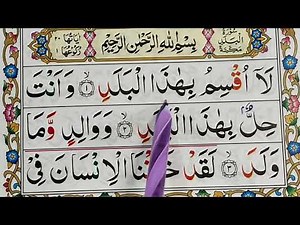 بِسْمِ اللّٰهِ الرَّحْمٰنِ الرَّحِيْمِ
لَاۤ اُقْسِمُ بِهٰذَا الْبَلَدِ ۙ﴿۱﴾ وَاَنْتَ
حِلٌّۢ بِهٰذَا الْبَلَدِ ۙ﴿۲﴾ وَوَالِدٍ وَّمَا
وَلَدَ ۙ﴿۳﴾ لَقَدْ خَلَقْنَا الْاِنْسَانَ فِيْ